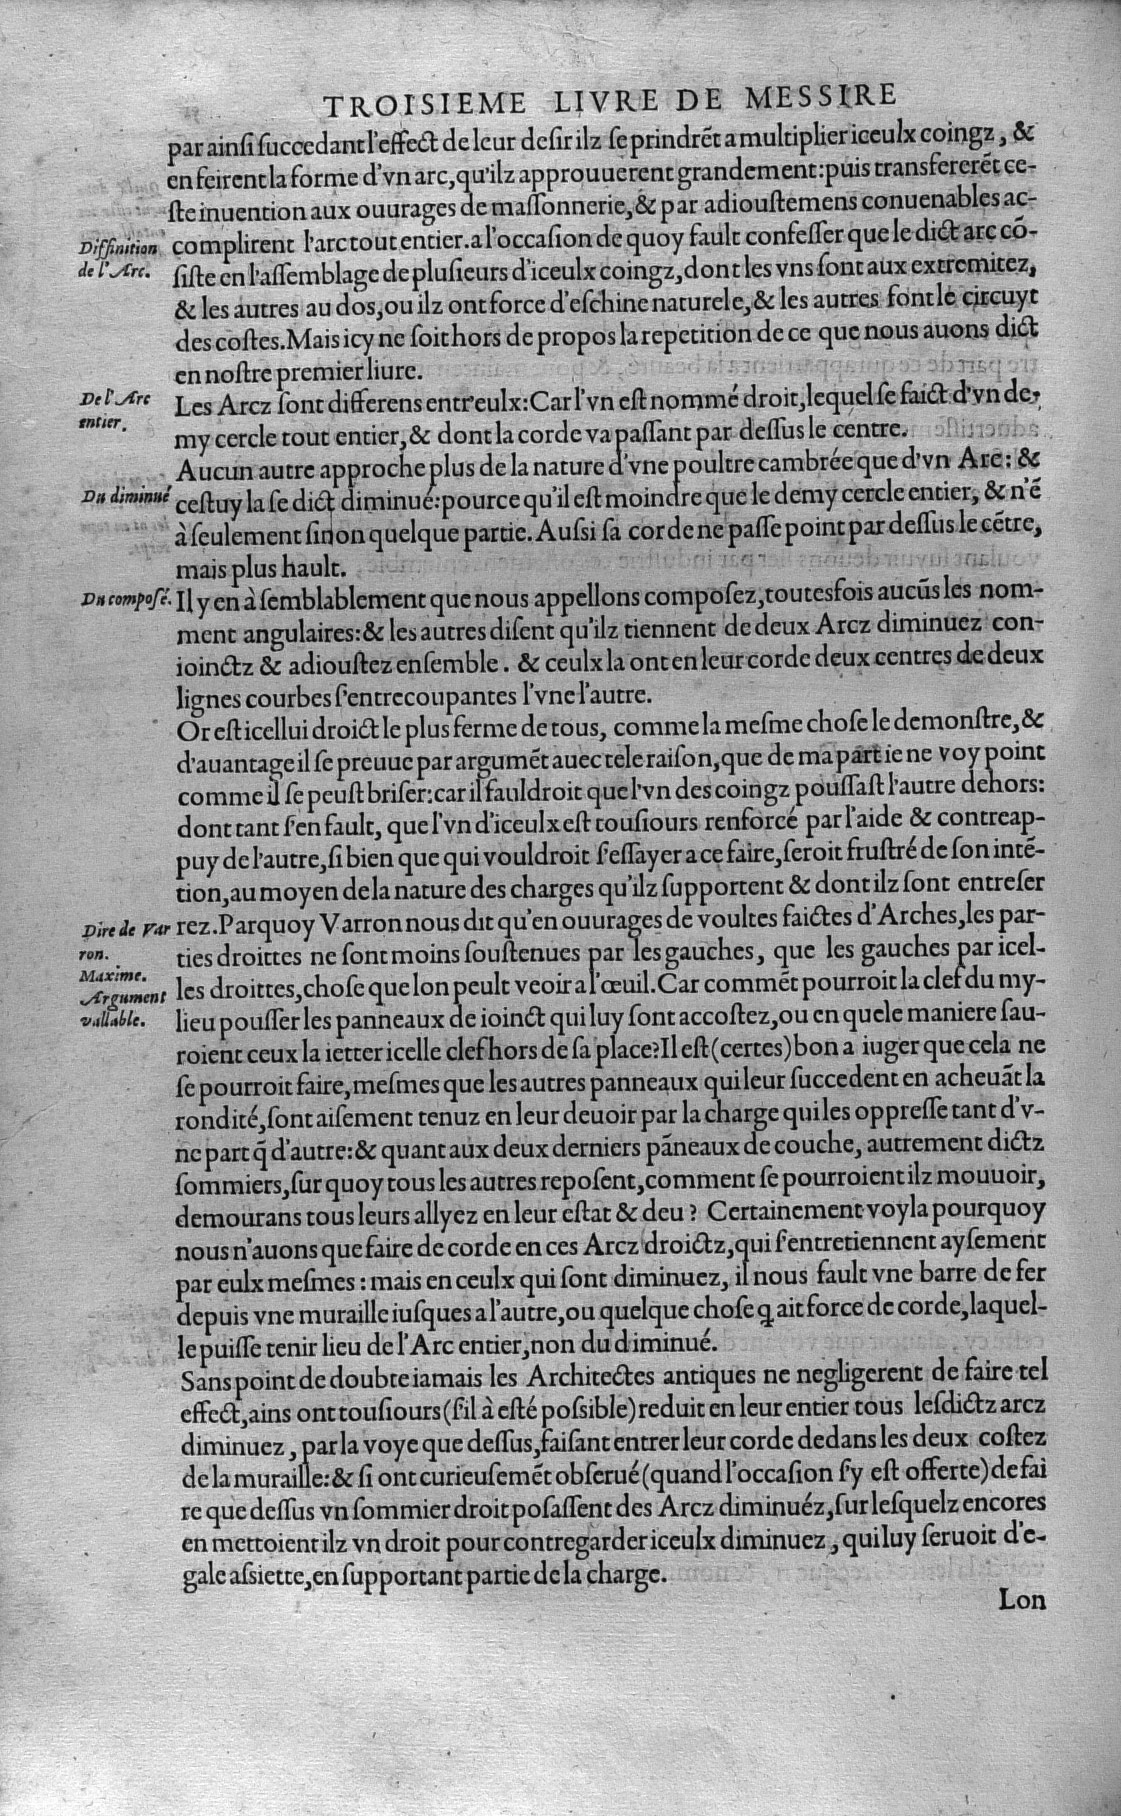 TROISIEME LIVRE DE MESSIRE
par ainſi ſuccedant l'effect de leur deſir ilz ſe prindrẽt a multiplier iceulx coingz, &
en feirent la forme d'vn arc, qu'ilz approuuerent grandement: puis transfererẽt ce-
ſte inuention aux ouurages de maſſonnerie, & par adiouſtemens conuenables ac-
Diffinition de l'Arc.
complirent l'arc tout entier. a l'occaſion de quoy fault confeſſer que le dict arc cõ-
ſiſte en l'aſſemblage de pluſieurs d'iceulx coingz, dont les vns ſont aux extremitez,
& les autres au dos, ou ilz ont force d'eſchine naturele, & les autres font le circuyt
des coſtes. Mais icy ne ſoit hors de propos la repetition de ce que nous auons dict
en noſtre premier liure.
De l'Arc entier.
Les Arcz ſont differens entr'eulx: Car l'vn eſt nommé droit, lequel ſe faict d'vn de-
my cercle tout entier, & dont la corde va paſſant par deſſus le centre.
Aucun autre approche plus de la nature d'vne poultre cambrée que d'vn Arc: &
Du diminué
ceſtuy la ſe dict diminué: pource qu'il eſt moindre que le demy cercle entier, & n'ẽ
à ſeulement ſinon quelque partie. Auſsi ſa corde ne paſſe point par deſſus le cẽtre,
mais plus hault.
Du compoſé.
Il y en à ſemblablement que nous appellons compoſez, toutesfois aucũs les nom-
ment angulaires: & les autres diſent qu'ilz tiennent de deux Arcz diminuez con-
ioinctz & adiouſtez enſemble. & ceulx la ont en leur corde deux centres de deux
lignes courbes ſ'entrecoupantes l'vne l'autre.
Or eſt icellui droict le plus ferme de tous, comme la meſme choſe le demonſtre, &
d'auantage il ſe preuue par argumẽt auec tele raiſon, que de ma partie ne voy point
comme il ſe peuſt briſer: car il fauldroit que l'vn des coingz pouſſaſt l'autre dehors:
dont tant ſ'en fault, que l'vn d'iceulx eſt touſiours renforcé par l'aide & contreap-
puy de l'autre, ſi bien que qui vouldroit ſ'eſſayer a ce faire, ſeroit fruſtré de ſon intẽ-
tion, au moyen de la nature des charges qu'ilz ſupportent & dont ilz ſont entreſer
Dire de Varron.
rez. Parquoy Varron nous dit qu'en ouurages de voultes faictes d'Arches, les par-
ties droittes ne ſont moins ſouſtenues par les gauches, que les gauches par icel-
Maxime.
Argument vallable.
les droittes, choſe que lon peult veoir a l'œuil. Car commẽt pourroit la clef du my-
lieu pouſſer les panneaux de ioinct qui luy ſont accoſtez, ou en quele maniere ſau-
roient ceux la ietter icelle clef hors de ſa place? Il eſt (certes) bon a iuger que cela ne
ſe pourroit faire, meſmes que les autres panneaux qui leur ſuccedent en acheuãt la
rondité, ſont aiſement tenuz en leur deuoir par la charge qui les oppreſſe tant d'v-
ne part q̃ d'autre: & quant aux deux derniers pãneaux de couche, autrement dictz
ſommiers, ſur quoy tous les autres repoſent, comment ſe pourroient ilz mouuoir,
demourans tous leurs allyez en leur eſtat & deu? Certainement voyla pourquoy
nous n'auons que faire de corde en ces Arcz droictz, qui ſ'entretiennent ayſement
par eulx meſmes: mais en ceulx qui ſont diminuez, il nous fault vne barre de fer
depuis vne muraille iuſques a l'autre, ou quelque choſe ꝗ ait force de corde, laquel-
le puiſſe tenir lieu de l'Arc entier, non du diminué.
Sans point de doubte iamais les Architectes antiques ne negligerent de faire tel
effect, ains ont touſiours (ſ'il à eſté poſsible) reduit en leur entier tous leſdictz arcz
diminuez, par la voye que deſſus, faiſant entrer leur corde dedans les deux coſtez
de la muraille: & ſi ont curieuſemẽt obſerué (quand l'occaſion ſ'y eſt offerte) de fai
re que deſſus vn ſommier droit poſaſſent des Arcz diminuéz, ſur leſquelz encores
en mettoient ilz vn droit pour contregarder iceulx diminuez, qui luy ſeruoit d'e-
gale aſsiette, en ſupportant partie de la charge.
Lon